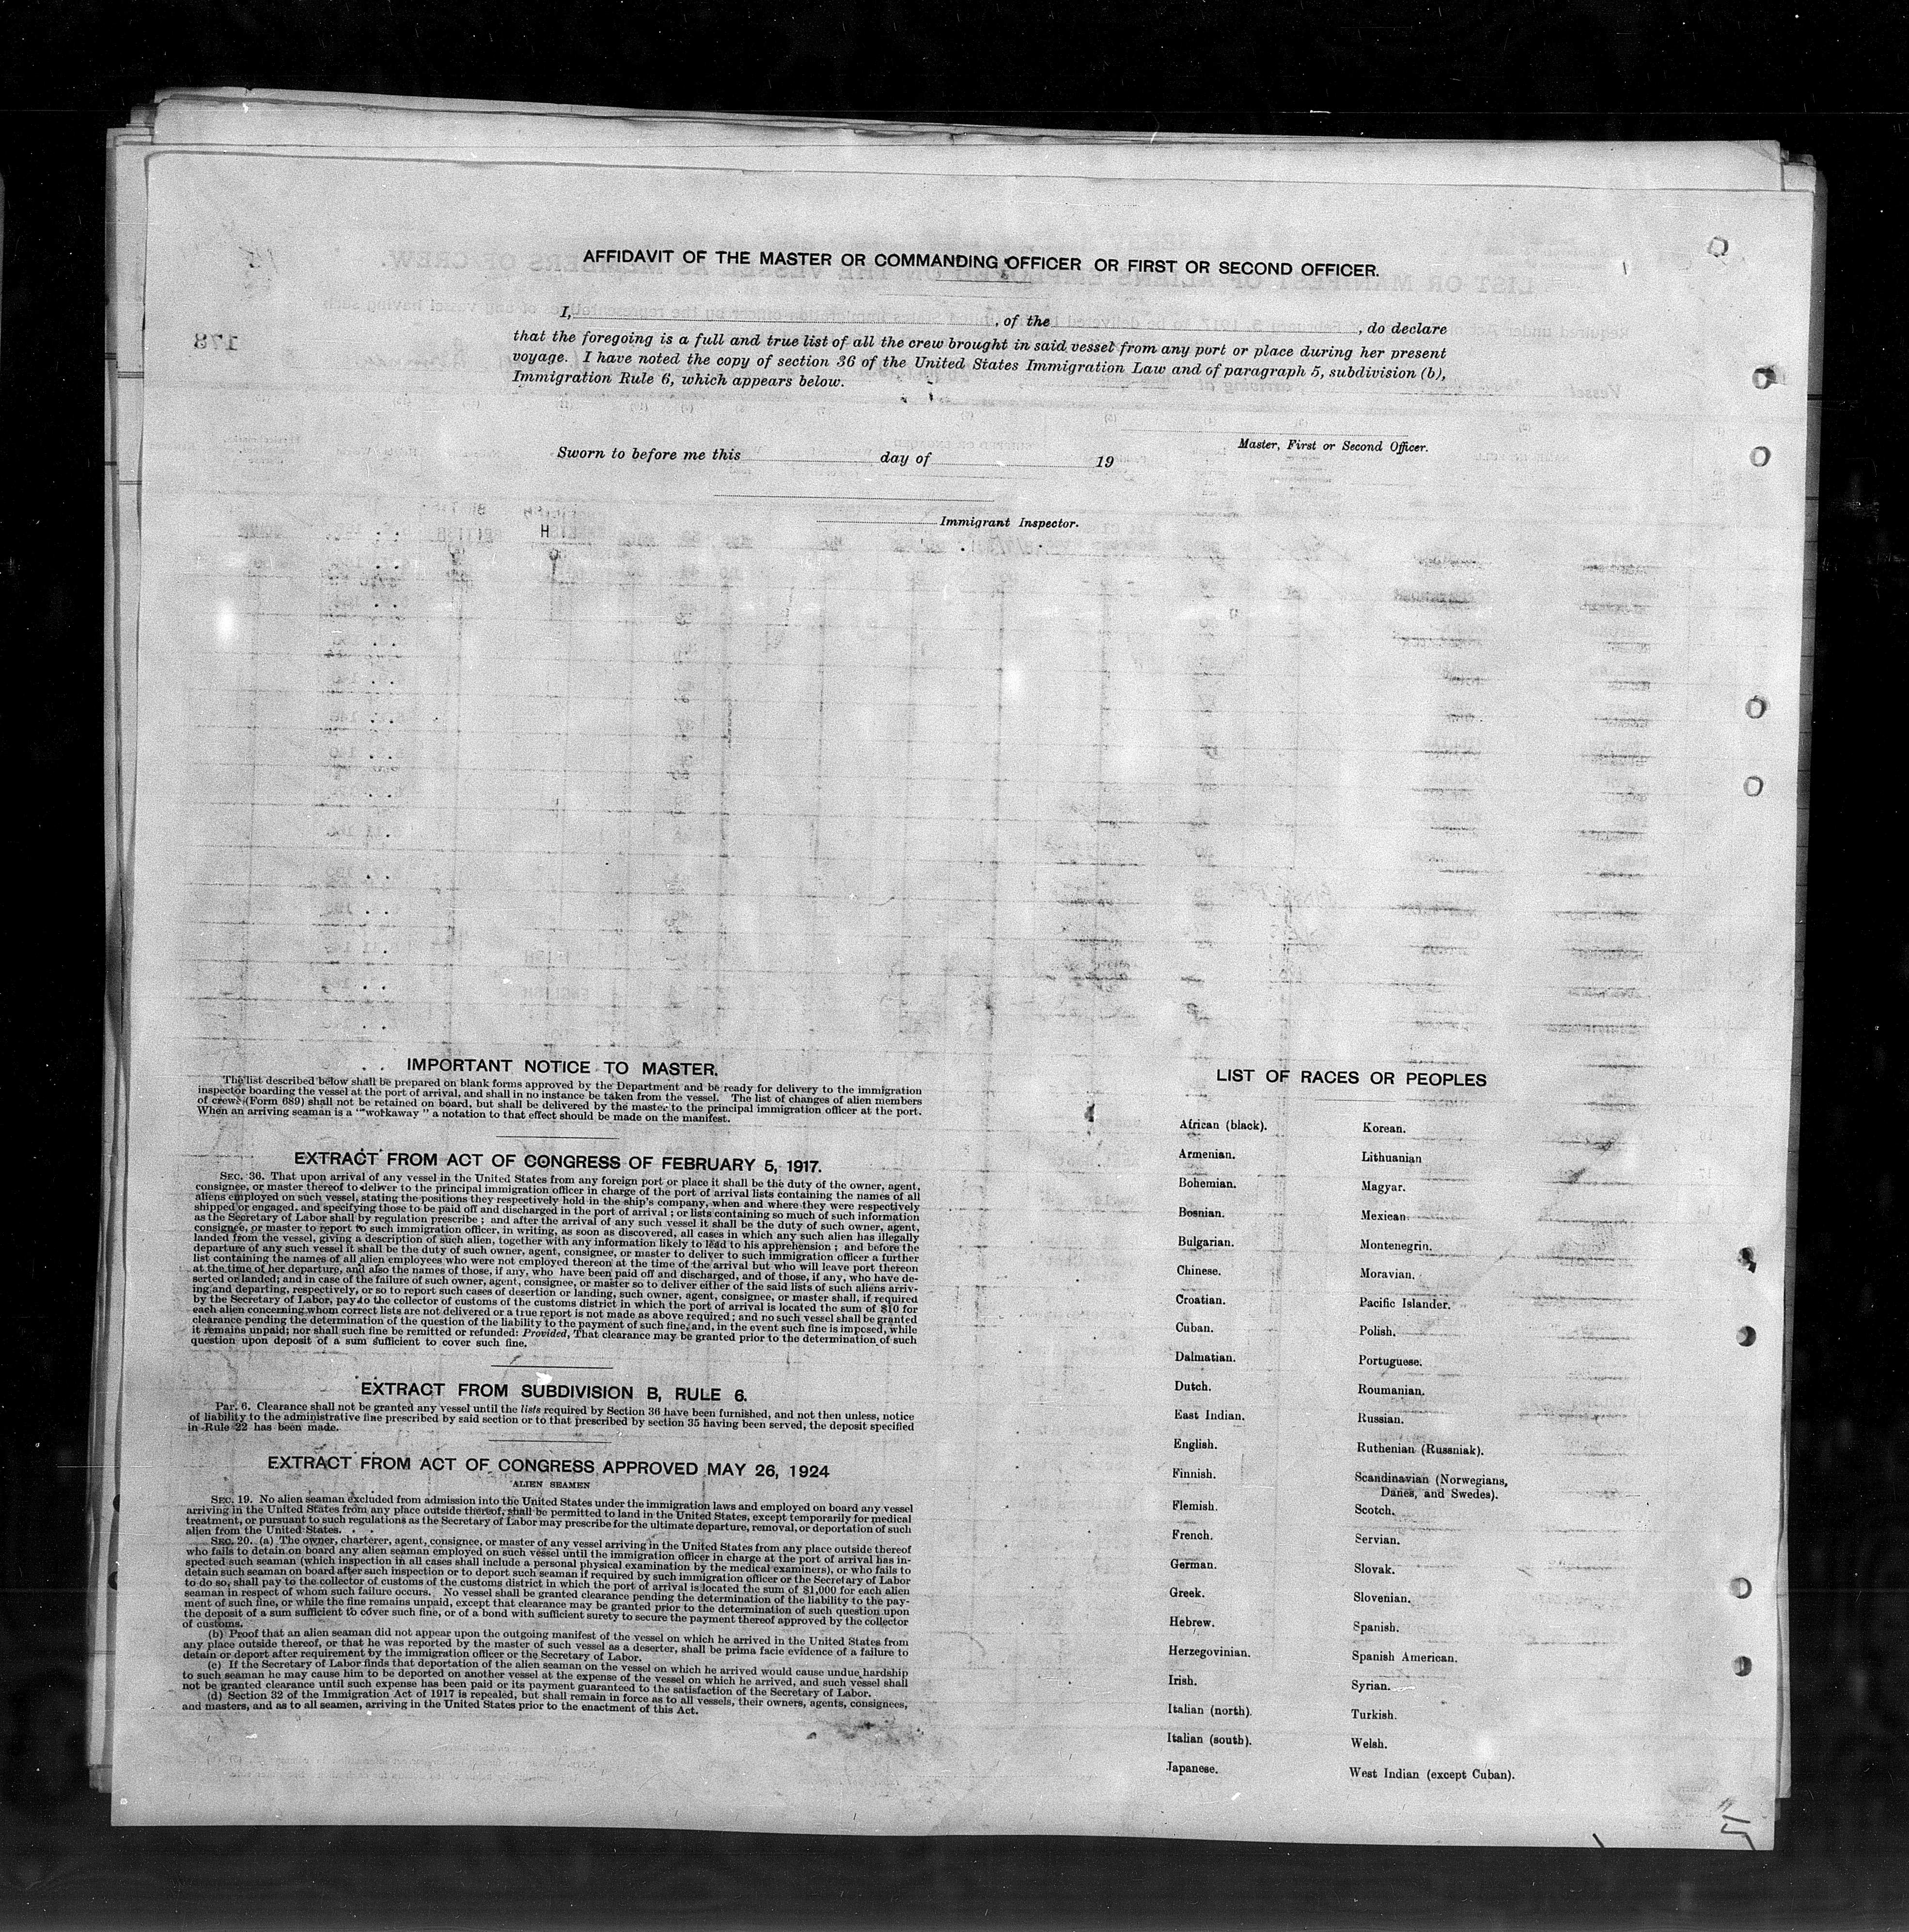 AFFIDAVIT OF THE MASTER OR COMMANDING OFFICER OR FIRST OR SECOND OFFICER.
I, , of the , do declare
that the foregoing is a full and true list of all the crew brought in said vessel from any port or place during her present
voyage. I have noted the copy of section 36 of the United States Immigration Law and of paragraph 5, subdivision (b),
Immigration Rule 6, which appears below.
Master, First or Second Officer.
Sworn to before me this day of 19
Immigrant Inspector.
IMPORTANT NOTICE TO MASTER.
The list described below shall be prepared on blank forms approved by the Department and be ready for delivery to the immigration
inspector boarding the vessel at the port of arrival, and shall in no instance be taken from the vessel. The list of changes of alien members
of crew (Form 689) shall not be retained on board, but shall be delivered by the master to the principal immigration officer at the port.
When an arriving seaman is a "workaway" a notation to that effect should be made on the manifest.
EXTRACT FROM ACT OF CONGRESS OF FEBRUARY 5, 1917.
SEC. 36. That upon arrival of any vessel in the United States from any foreign port or place it shall be the duty of the owner, agent,
consignee, or master thereof to deliver to the principal immigration officer in charge of the port of arrival lists containing the names of all
aliens employed on such vessel, stating the positions they respectively hold in the ship's company, when and where they were respectively
shipped or engaged, and specifying those to be paid off and discharged in the port of arrival; or lists containing so much of such information
as the Secretary of Labor shall by regulation prescribe; and after the arrival of any such vessel it shall be the duty of such owner, agent,
consignee, or master to report to such immigration officer, in writing, as soon as discovered, all cases in which any such alien has illegally
landed from the vessel, giving a description of such alien, together with any information likely to lead to his apprehension; and before the
departure of any such vessel it shall be the duty of such owner, agent, consignee, or master to deliver to such immigration officer a further
list containing the names of all alien employees who were not employed thereon at the time of the arrival but who will leave port thereon
at the time of her departure, and also the names of those, if any, who have been paid off and discharged, and of those, if any, who have de-
serted or landed; and in case of the failure of such owner, agent, consignee, or master so to deliver either of the said lists of such aliens arriv-
ing and departing, respectively, or so to report such cases of desertion or landing, such owner, agent, consignee, or master shall, if required
by the Secretary of Labor, pay to the collector of customs of the customs district in which the port of arrival is located the sum of $10 for
each alien concerning whom correct lists are not delivered or a true report is not made as above required; and no such vessel shall be granted
clearance pending the determination of the question of the liability to the payment of such fine, and, in the event such fine is imposed, while
it remains unpaid; nor shall such fine be remitted or refunded: Provided, That clearance may be granted prior to the determination of such
question upon deposit of a sum sufficient to cover such fine.
EXTRACT FROM SUBDIVISION B, RULE 6.
Par. 6. Clearance shall not be granted any vessel until the lists required by Section 36 have been furnished, and not then unless, notice
of liability to the administrative fine prescribed by said section or to that prescribed by section 35 having been served, the deposit specified
in Rule 22 has been made.
EXTRACT FROM ACT OF CONGRESS APPROVED MAY 26, 1924
ALIEN SEAMEN
SEC. 19. No alien seaman excluded from admission into the United States under the immigration laws and employed on board any vessel
arriving in the United States from any place outside thereof, shall be permitted to land in the United States, except temporarily for medical
treatment, or pursuant to such regulations as the Secretary of Labor may prescribe for the ultimate departure, removal, or deportation of such
alien from the United States.
SEC. 20. (a) The owner, charterer, agent, consignee, or master of any vessel arriving in the United States from any place outside thereof
who fails to detain on board any alien seaman employed on such vessel until the immigration officer in charge at the port of arrival has in-
spected such seaman (which inspection in all cases shall include a personal physical examination by the medical examiners), or who fails to
detain such seaman on board after such inspection or to deport such seaman if required by such immigration officer or the Secretary of Labor
to do so, shall pay to the collector of customs of the customs district in which the port of arrival is located the sum of $1,000 for each alien
seaman in respect of whom such failure occurs. No vessel shall be granted clearance pending the determination of the liability to the pay-
ment of such fine, or while the fine remains unpaid, except that clearance may be granted prior to the determination of such question upon
the deposit of a sum sufficient to cover such fine, or of a bond with sufficient surety to secure the payment thereof approved by the collector
of customs.
(b) Proof that an alien seaman did not appear upon the outgoing manifest of the vessel on which he arrived in the United States from
any place outside thereof, or that he was reported by the master of such vessel as a deserter, shall be prima facie evidence of a failure to
detain or deport after requirement by the immigration officer or the Secretary of Labor.
(c) If the Secretary of Labor finds that deportation of the alien seaman on the vessel on which he arrived would cause undue hardship
to such seaman he may cause him to be deported on another vessel at the expense of the vessel on which he arrived, and such vessel shall
not be granted clearance until such expense has been paid or its payment guaranteed to the satisfaction of the Secretary of Labor.
(d) Section 32 of the Immigration Act of 1917 is repealed, but shall remain in force as to all vessels, their owners, agents, consignees,
and masters, and as to all seamen, arriving in the United States prior to the enactment of this Act.
LIST OF RACES OR PEOPLES
African (black).
Armenian.
Bohemian.
Bosnian.
Bulgarian.
Chinese.
Croatian.
Cuban.
Dalmatian.
Dutch.
East Indian.
English.
Finnish.
Flemish.
French.
German.
Greek.
Hebrew.
Herzegovinian.
Irish.
Italian (north).
Italian (south).
Japanese.
Korean.
Lithuanian
Magyar.
Mexican.
Montenegrin.
Moravian.
Pacific Islander.
Polish.
Portuguese.
Roumanian.
Russian.
Ruthenian (Russniak).
Scandinavian (Norwegians,
Danes, and Swedes).
Scotch.
Servian.
Slovak.
Slovenian.
Spanish.
Spanish American.
Syrian.
Turkish.
Welsh.
West Indian (except Cuban).